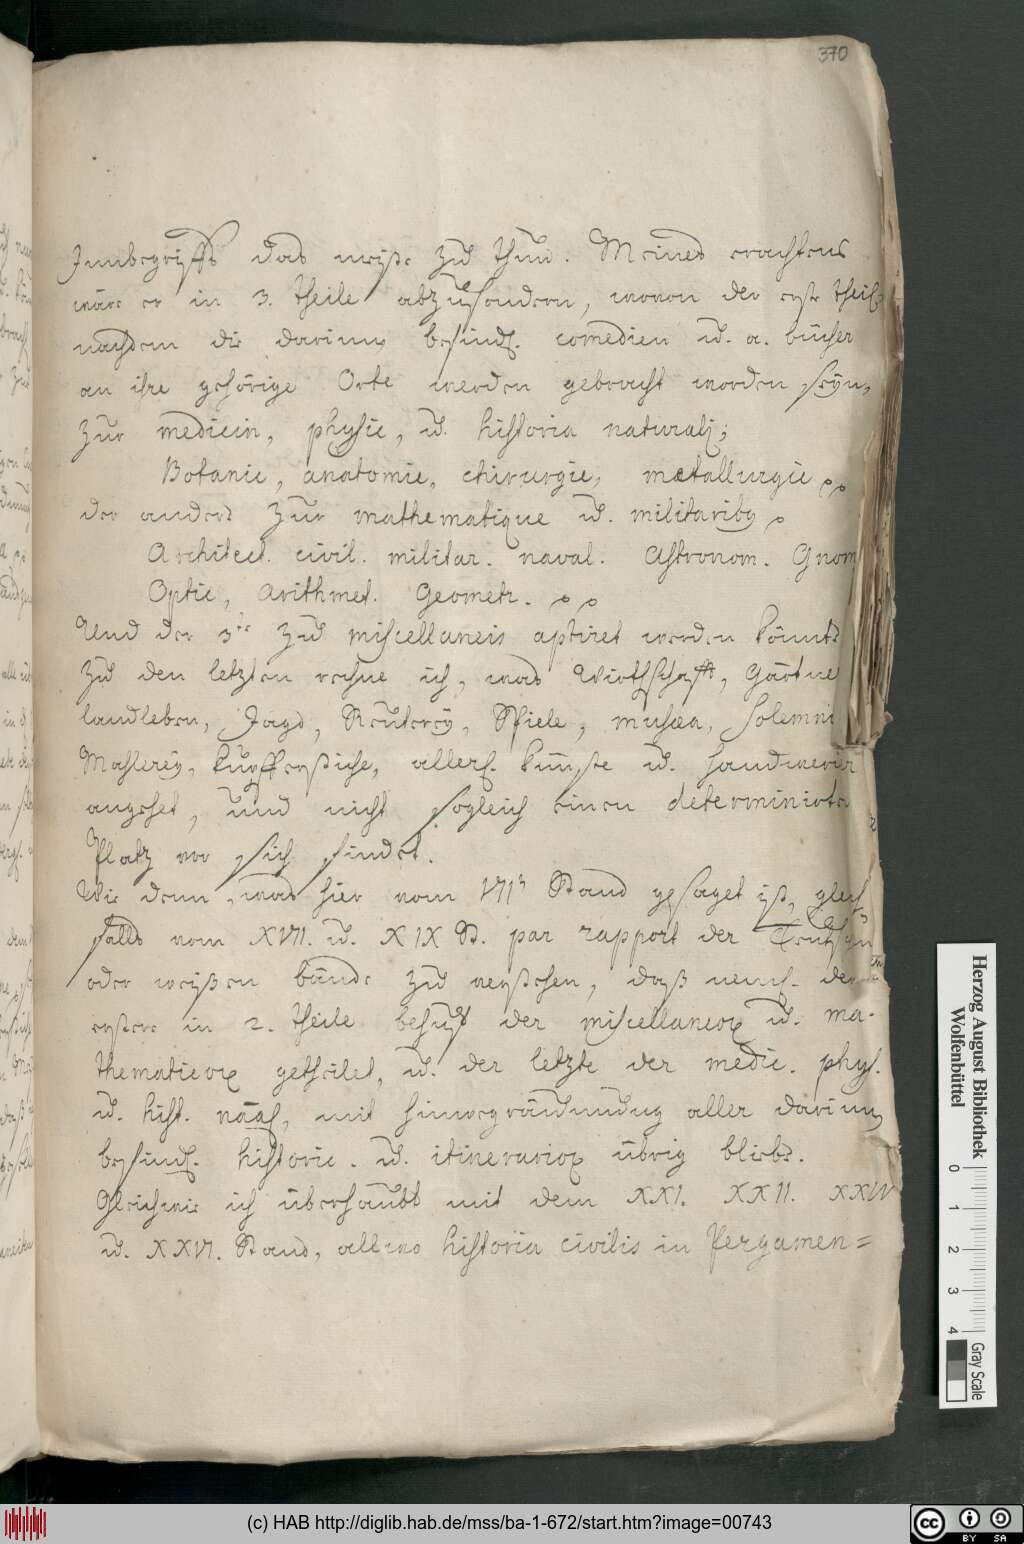 370
Innbegriffs das meiste zu thun. Meines erachtens
wäre er in 3. theile abzusondern, wovon der erste theil
nachdem die darinn befindl. comedien u. a. bücher
an ihre gehörige Orte werden gebracht worden seyn,
zur medicin, physic, u. historia naturali;
Botanic, anatomie, chirurgie, metallurgie
der andere zur mathematique u. militaribus
Architect. civil. militar. naval. Astronom. Gnom
Optic, Arithmet. Geometr.
Und der 3te zu miscellaneis aptiret werden könnte
zu den letzten rechne ich, was Wirthschafft, Gärtne
landleben, Jagd, Reuterey, Spiele, musica, Solemni
Mahlerey, Kupfferstiche, allerh. Künste u. handwercker
angehet, und nicht sogleich einen determinirten
Platz vor sich findet.
Wie denn, was hier vom Stand gesaget ist, gleich
falls vom XVII. u. XIX St. par rapport der Teutschen
oder weißen bände zu verstehen, daß neml. der
erstere in 2. theile behuf der miscellaneor. u. ma-
thematicor. getheilet, u. der letzte der medic. phys.
u. hist. nat., mit hinwegräumung aller darinn
befindl. historic. u. itinerarior. übrig bliebe.
Gleichwie ich überhaubt mit dem XXI. XXII. XXIV
u. XXVI. Stand, allwo historia civilis in Pergamen=
Herzog August Bibliothek
Wolfenbüttel
0 1 2 3 4
Gray Scale
(c) HAB http://diglib.hab.de/mss/ba-1-672/start.htm?image=00743
cc BY SA